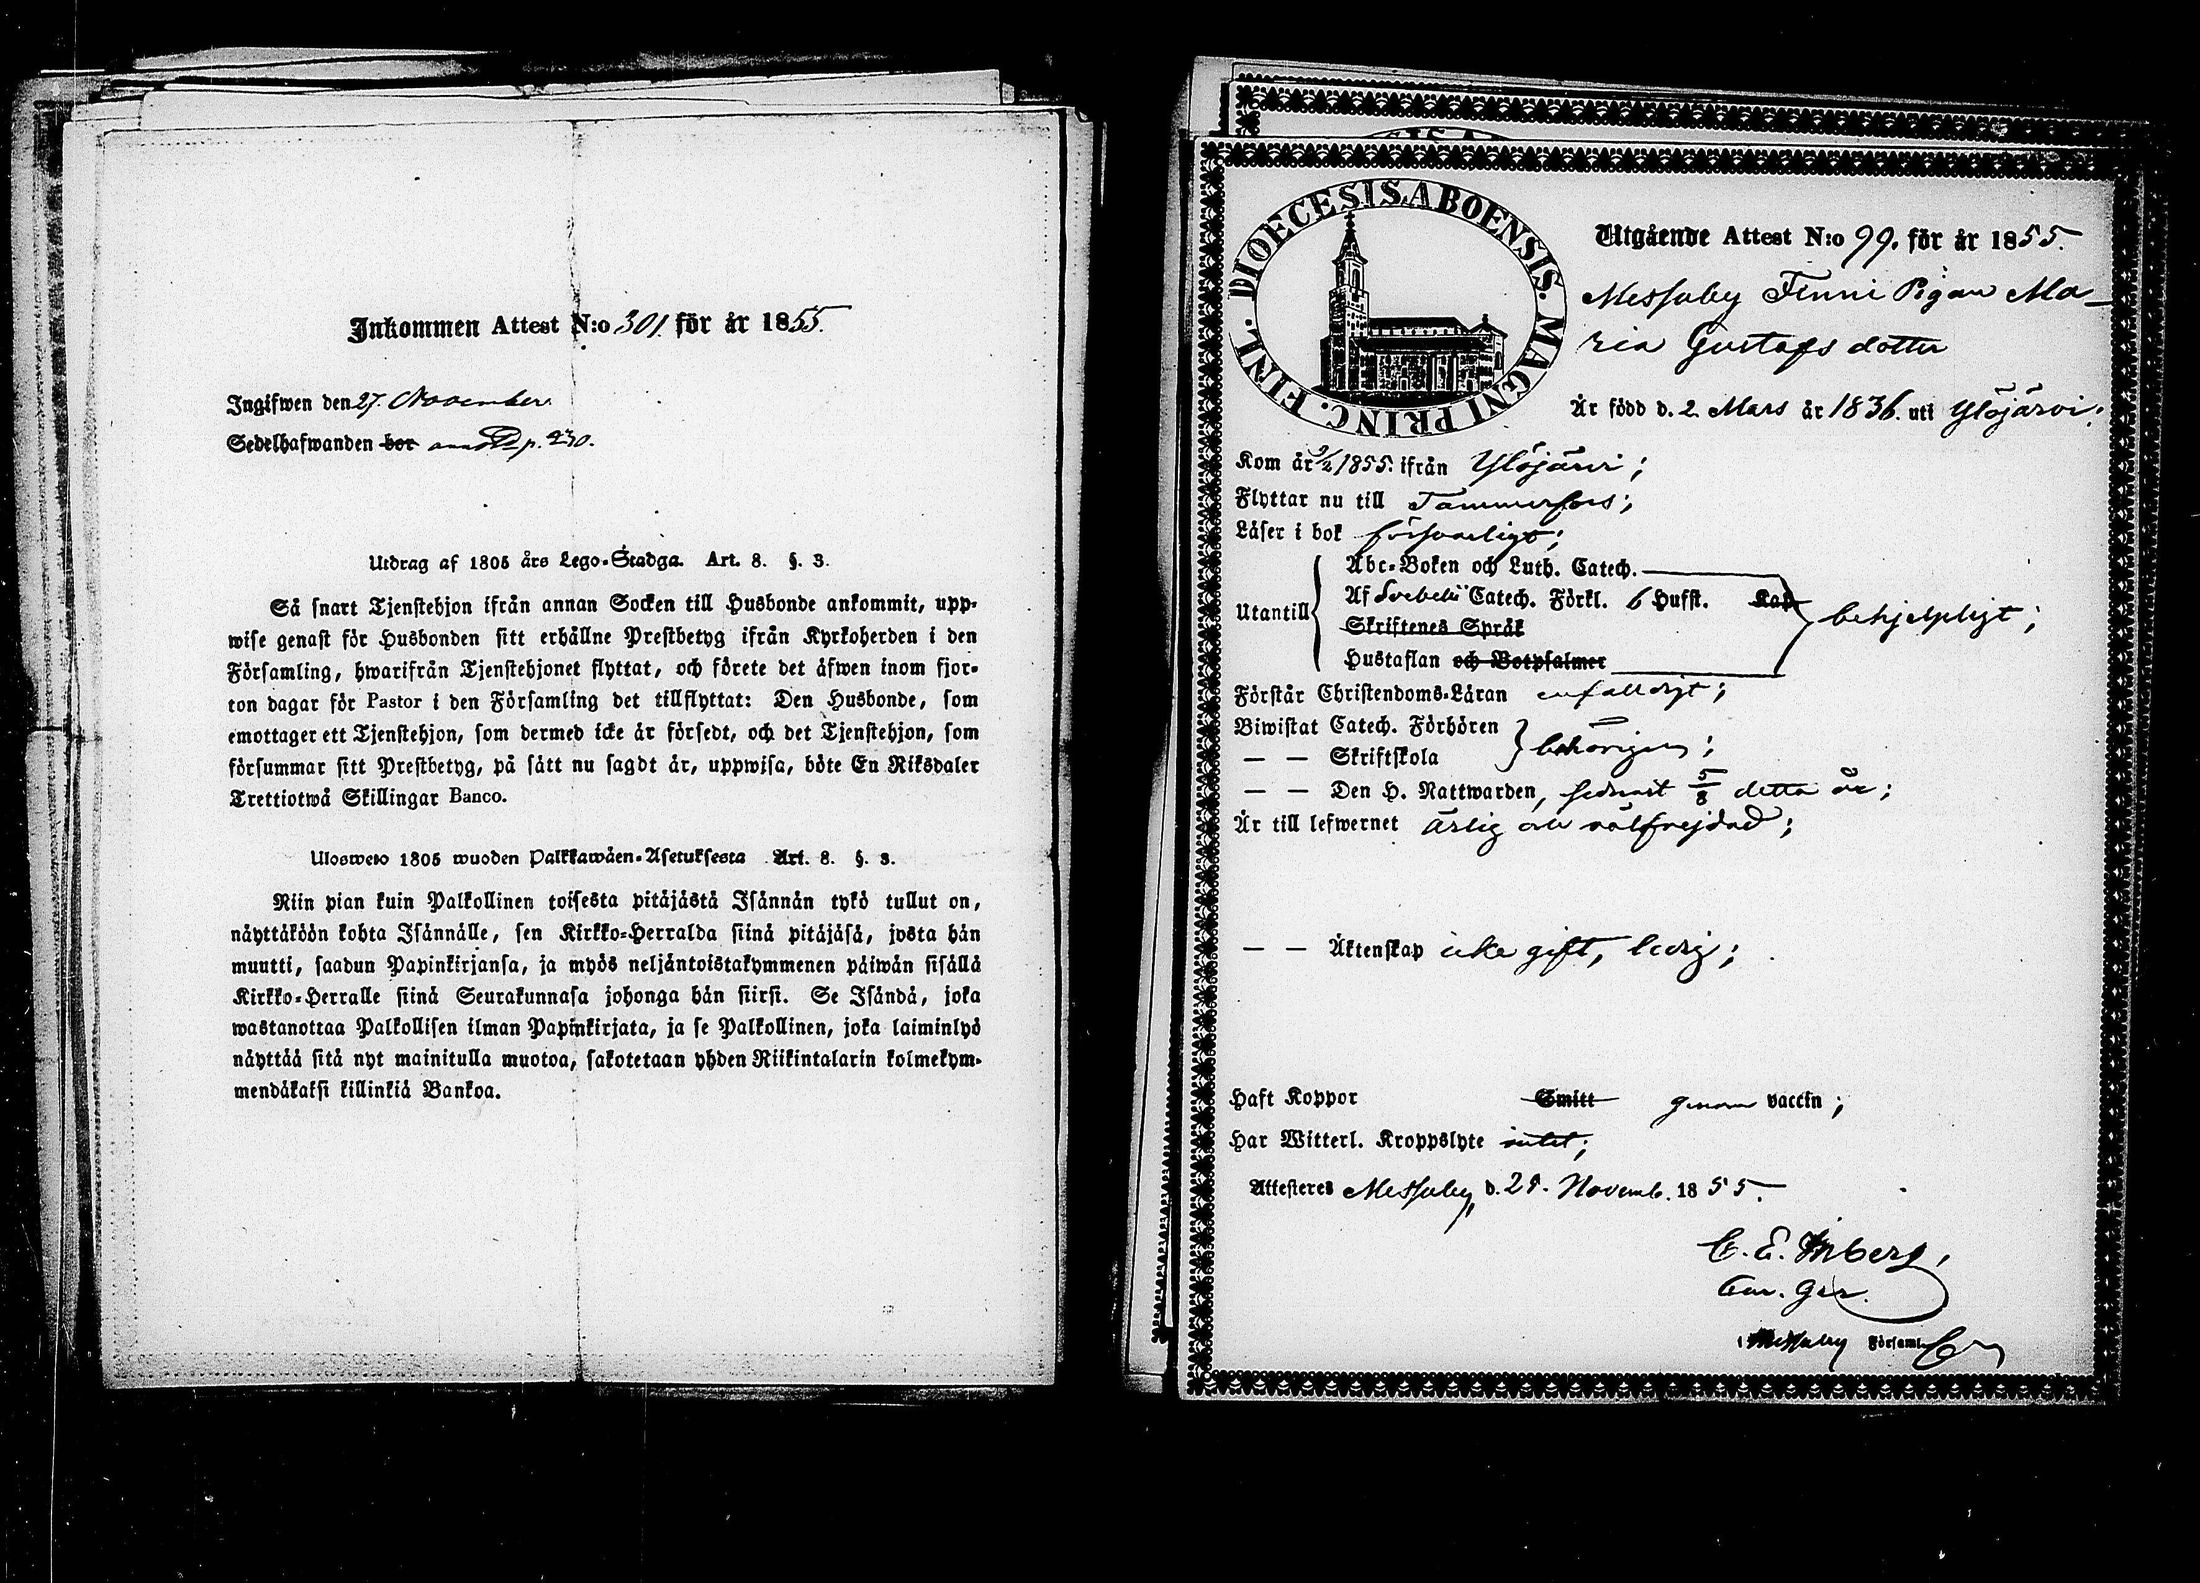 Inkommen Attest N:o 301. för år 1855.
Ingifwen den 27. November.
Sedelhafwanden bor p. 230.
Utdrag af 1805 års Lego-Stadga. Art. 8. §. 3.
Så snart Tjenstehjon ifrån annan Socken till Husbonde ankommit, upp-
wise genast för Husbonden sitt erhållne Prestbetyg ifrån Kyrkoherden i den
Församling, hwarifrån Tjenstehjonet flyttat, och förete det äfwen inom fjor-
ton dagar för Pastor i den Församling det tillflyttat: Den Husbonde, som
emottager ett Tjenstehjon, som dermed icke är försedt, och det Tjenstehjon, som
försummar sitt Prestbetyg, på sätt nu sagdt är, uppwisa, böte En Riksdaler
Trettiotwå Skillingar Banco.
Ulosweto 1805 wuoden Palkkawäen-Asetuksesta Art. 8. §. 3.
Niin pian kuin Palkollinen toisesta pitäjästä Isännän tykö tullut on,
näyttäköön kohta Isännälle, sen Kirkko-Herralda siinä pitäjäsä, josta hän
muutti, saadun Papinkirjansa, ja myös neljäntoistakymmenen päiwän sisällä
Kirkko-Herralle siinä Seurakunnasa johonga hän siirsi. Se Isändä, joka
wastanottaa Palkollisen ilman Papinkirjata, ja se Palkollinen, joka laiminlyö
näyttää sitä nyt mainitulla muotoa, sakotetaan yhden Riikintalarin kolmekym-
mendäkaksi killinkiä Bankoa.
DIOECESIS. ABOENSIS. MAGNI PRINC. FINL.
Utgående Attest N:o 99. för år 1855.
Messuby Finni Pigan Ma-
ria Gustafs dotter
Är född d. 2 Mars år 1836. uti Ylöjärvi;
Kom år 9/2 1855. ifrån Ylöjärvi;
Flyttar nu till Tammerfors;
Läser i bok försvarligt;
Utantill
Abc-Boken och Luth. Catech.
Af Svebelii Catech. Förkl. 6 Hufst. Kap
Skriftenes Språk
Hustaflan och Botpsalmer
behjelpligt;
Förstår Christendoms-Läran enfalldigt;
Biwistat Catech. Förhören
— — Skriftskola
behörigen;
— — Den H. Nattwarden, sednast 5/8 detta år;
Är till lefwernet ärlig och välfrejdad;
— — Äktenskap icke gift, ledig;
Haft Koppor Smitt genom vaccin;
Har Witterl. Kroppslyte intet;
Attesteres Messuby d. 28. Novemb. 1855.
C. E.
i Messuby Församl.